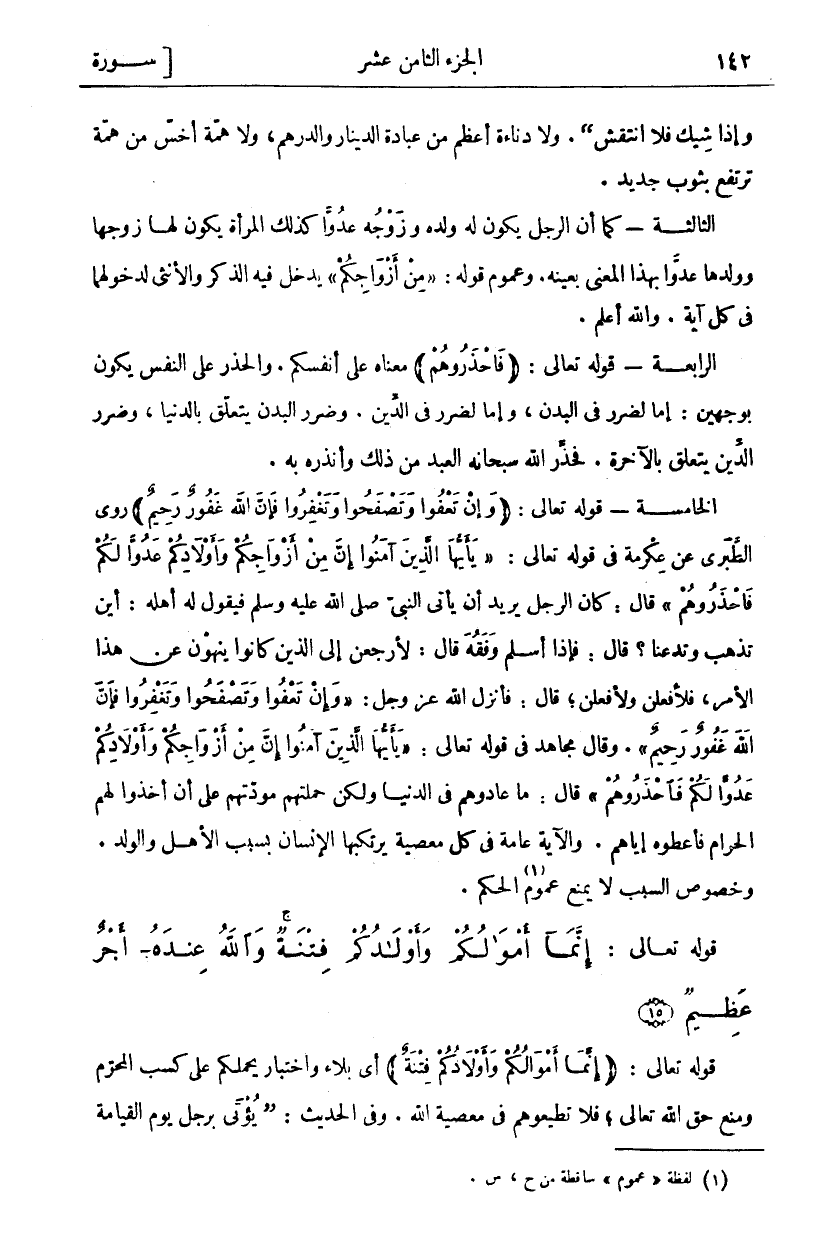 ١٤٢ الجزء الثامن عشر [ ســورة
وإذا شِيك فلا انتقش“ . ولا دناءة أعظم من عبادة الدينار والدرهم، ولا همّة أخسّ من همّة
ترتفع بثوب جديد .
الثالثـــة — كما أن الرجل يكون له ولده وزَوْجُه عدُوًّا كذلك المرأة يكون لهــا زوجها
وولدها عدوًّا بهذا المعنى بعينه. وعموم قوله : «مِنْ أَزْوَاجِكُمْ» يدخل فيه الذكر والأنثى لدخولهما
فى كل آية . والله أعلم .
الرابعـــة — قوله تعالى : ( فَاحْذَرُوهُمْ ) معناه على أنفسكم . والحذر على النفس يكون
بوجهين : إما لضرر فى البدن ، وإما لضرر فى الدِّين . وضرر البدن يتعلّق بالدنيا ، وضرر
الدِّين يتعلق بالآخرة . فحذَّر الله سبحانه العبد من ذلك وأنذره به .
الخامســـة — قوله تعالى : ( وَإِنْ تَعْفُوا وَتَصْفَحُوا وَتَغْفِرُوا فَإِنَّ اللّٰهَ غَفُورٌ رَحِيمٌ ) روى
الطَّبَرى عن عِكْرمة فى قوله تعالى : « يَأَيُّهَا الَّذِينَ آمَنُوا إِنَّ مِنْ أَزْوَاجِكُمْ وَأَوْلَادِكُمْ عَدُوًّا لَكُمْ
فَاحْذَرُوهُمْ » قال : كان الرجل يريد أن يأتى النبىّ صلى الله عليه وسلم فيقول له أهله : أين
تذهب وتدعنا ؟ قال : فإذا أسلم وَفَقُهَ قال : لأرجعن إلى الذين كانوا ينهوْن عن هذا
الأمر، فلأفعلن ولأفعلن؛ قال : فأنزل الله عز وجل: «وَإِنْ تَعْفُوا وَتَصْفَحُوا وَتَغْفِرُوا فَإِنَّ
اللّٰهَ غَفُورٌ رَحِيمٌ» . وقال مجاهد فى قوله تعالى : «يَأَيُّهَا الَّذِينَ آمَنُوا إِنَّ مِنْ أَزْوَاجِكُمْ وَأَوْلَادِكُمْ
عَدُوًّا لَكُمْ فَاحْذَرُوهُمْ » قال : ما عادوهم فى الدنيــا ولكن حملتهم مودّتهم على أن أخذوا لهم
الحرام فأعطوه إياهم . والآية عامة فى كل معصية يرتكبها الإنسان بسبب الأهــل والولد .
وخصوص السبب لا يمنع عموم(١) الحكم .
قوله تعــالى : إِنَّمَــآ أَمْوَٰلُكُمْ وَأَوْلَـٰدُكُمْ فِتْنَـةٌ ۚ وَٱللَّهُ عِندَهُۥٓ أَجْرٌ
عَظِـــيمٌ (١٥)
قوله تعالى : ( إِنَّمَــا أَمْوَالُكُمْ وَأَوْلَادُكُمْ فِتْنَةٌ ) أى بلاء واختبار يحملكم على كسب المحرّم
ومنع حق الله تعالى ؛ فلا تطيعوهم فى معصية الله . وفى الحديث : ” يُؤْتَى برجل يوم القيامة
(١) لفظة « عموم » ساقطة من ح ، س .